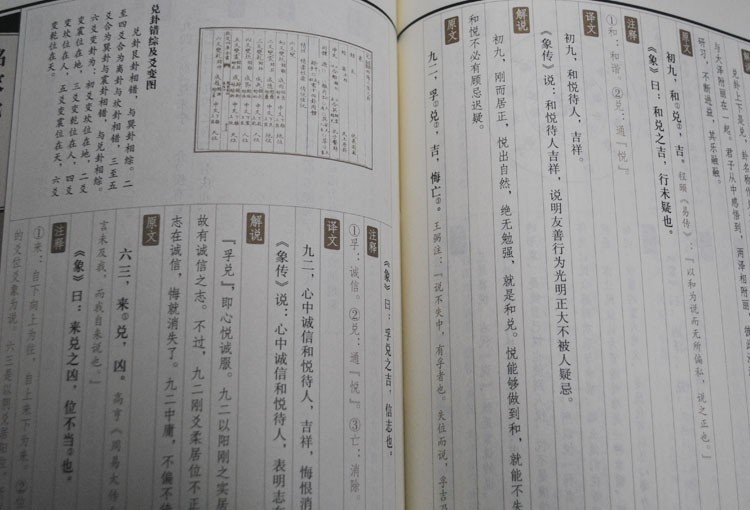 与大泽附丽在一起。君子从中感悟到,两泽相附丽,
研习,不断进益,其乐融融。
原文
初九,和兑,吉。
程颐《易传》:“以和为说而无所偏私,说之正也。”
《象》曰:和兑之吉,行未疑也。
注释
①和:和谐。②兑:通『悦』。
译文
初九,和悦待人,吉祥。
《象传》说:和悦待人吉祥,说明友善行为光明正大不被人疑忌。
解说
初九,刚而居正,悦出自然,绝无勉强,就是和兑。悦能够做到和,就能不失
和悦不必有顾忌迟疑。
原文
九二,孚兑,吉,悔亡。
王弼注:“说不失中,有孚者也。失位而说,孚吉乃
《象》曰:孚兑之吉,信志也。
注释
①孚:诚信。②兑:通『悦』。③亡:消除。
译文
九二,心中诚信和悦待人,吉祥,悔恨消
《象传》说:心中诚信和悦待人,表明志在
解说
『孚兑』,即心悦诚服。九二以阳刚之实居
故有诚信之志。不过,九二刚爻柔居位不正
志在诚信,悔就消失了。九二中庸,不偏不倚
原文
六三,来兑,凶。
高亨《周易大传
言未及我,而我自来说也。”
《象》曰:来兑之凶,位不当也。
注释
①来:自下向上为往,自上来下为来。②位
的爻位爻象为说。六三是以阴爻居阳位,
兑卦错综及爻变图
兑卦艮卦相错,与巽卦相综。二
至四爻合为离卦与坎卦相错,三至五
爻合为巽卦与震卦相错,与兑卦相综。
六爻变卦为:初爻变坎位在地,二爻
变震位在地,三爻变乾位在人,四爻
变坎位在人,五爻变震位在天,六爻
变乾位在天。